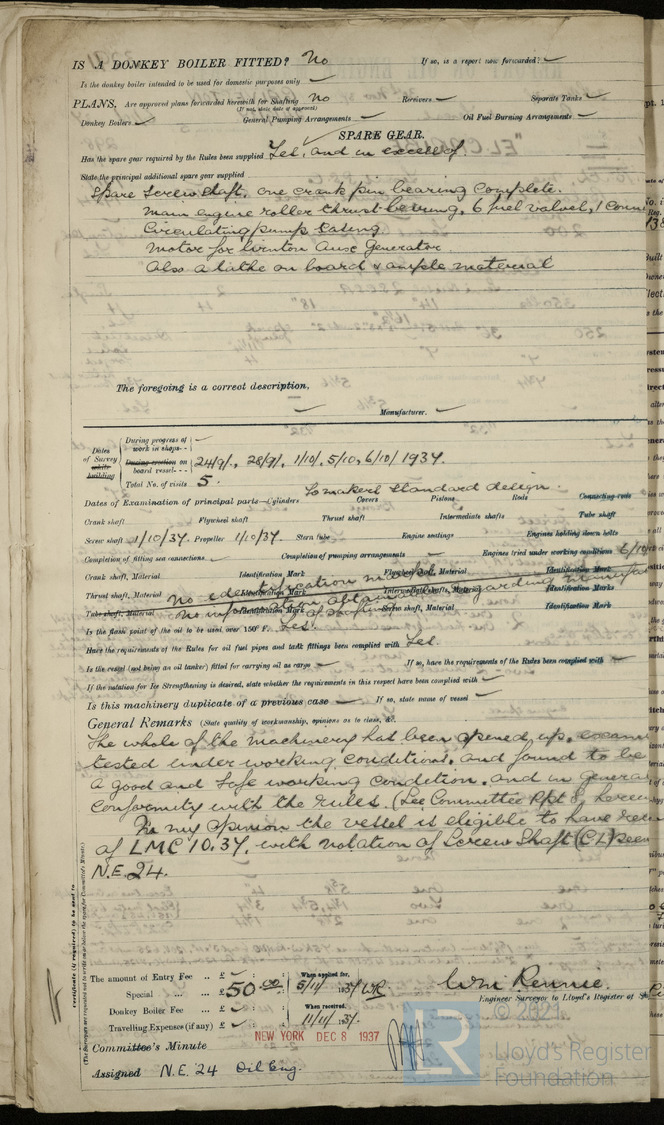 IS A DONKEY BOILER FITTED? No If so, is a report now forwarded? ✓
Is the donkey boiler intended to be used for domestic purposes only ✓
PLANS. Are approved plans forwarded herewith for Shafting No Receivers ✓ Separate Tanks ✓
(If not, state date of approval)
Donkey Boilers ✓ General Pumping Arrangements ✓ Oil Fuel Burning Arrangements ✓
SPARE GEAR.
Has the spare gear required by the Rules been supplied Yes, and in excess of
State the principal additional spare gear supplied
Spare Screw shaft, one crank pin bearing complete.
Main engine roller thrust bearing, 6 fuel valves, 1
Circulating pump casing
Motor for Winton Aux Generator
Also a lathe on board & ample material
The foregoing is a correct description,
✓ Manufacturer. ✓
Dates of Survey while building
During progress of work in shops -- ✓
During erection on board vessel --- 24/9/., 28/9/, 1/10/, 5/10, 6/10/ 1937.
Total No. of visits 5.
Dates of Examination of principal parts—Cylinders To makers standard design. Covers Pistons Rods Connecting rods
Crank shaft Flywheel shaft Thrust shaft Intermediate shafts Tube shaft
Screw shaft 1/10/37. Propeller 1/10/37. Stern tube Engine seatings Engines holding down bolts
Completion of fitting sea connections ✓ Completion of pumping arrangements ✓ Engines tried under working conditions 6/10/
Crank shaft, Material Identification Mark Flywheel shaft, Material Identification Mark
Thrust shaft, Material Identification Mark Intermediate shafts, Material Identification Marks
Tube shaft, Material Identification Mark Screw shaft, Material Identification Mark
No identification marks
No information obtainable regarding
Is the flash point of the oil to be used over 150° F. Yes.
Have the requirements of the Rules for oil fuel pipes and tank fittings been complied with Yes.
Is the vessel (not being an oil tanker) fitted for carrying oil as cargo ✓ If so, have the requirements of the Rules been complied with ✓
If the notation for Ice Strengthening is desired, state whether the requirements in this respect have been complied with ✓
Is this machinery duplicate of a previous case ✓ If so, state name of vessel ✓
General Remarks (State quality of workmanship, opinions as to class, &c.
The whole of the machinery has been opened up,
tested under working conditions, and found to be
a good and safe working condition, and in general
conformity with the rules. (See Committee Rpt 8,
In my opinion the vessel is eligible to have
of LMC 10.37. with notation of Screw Shaft (CL) seen
N.E. 24.
Certificate (if required) to be sent to
(The Surveyors are requested not to write on or below the space for Committee's Minute.)
The amount of Entry Fee .. £ ✓ When applied for,
Special ... £ 50.00 5/11/ 1937 WR
Donkey Boiler Fee ... £ ✓ When received,
Travelling Expenses (if any) £ ✓ 11/11/ .37.
Wm Rennie.
Engineer Surveyor to Lloyd's Register of
Committee's Minute NEW YORK DEC 8 1937
Assigned N.E. 24 Oil Eng.
© 2021
LR
Lloyd's Register
Foundation